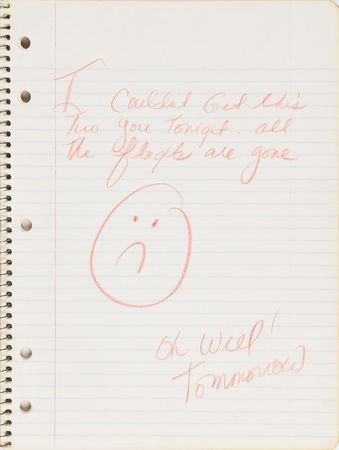 I Couldn't Get this
Two you Tonight. all
The flights are gone
Oh Well!
Tommorow